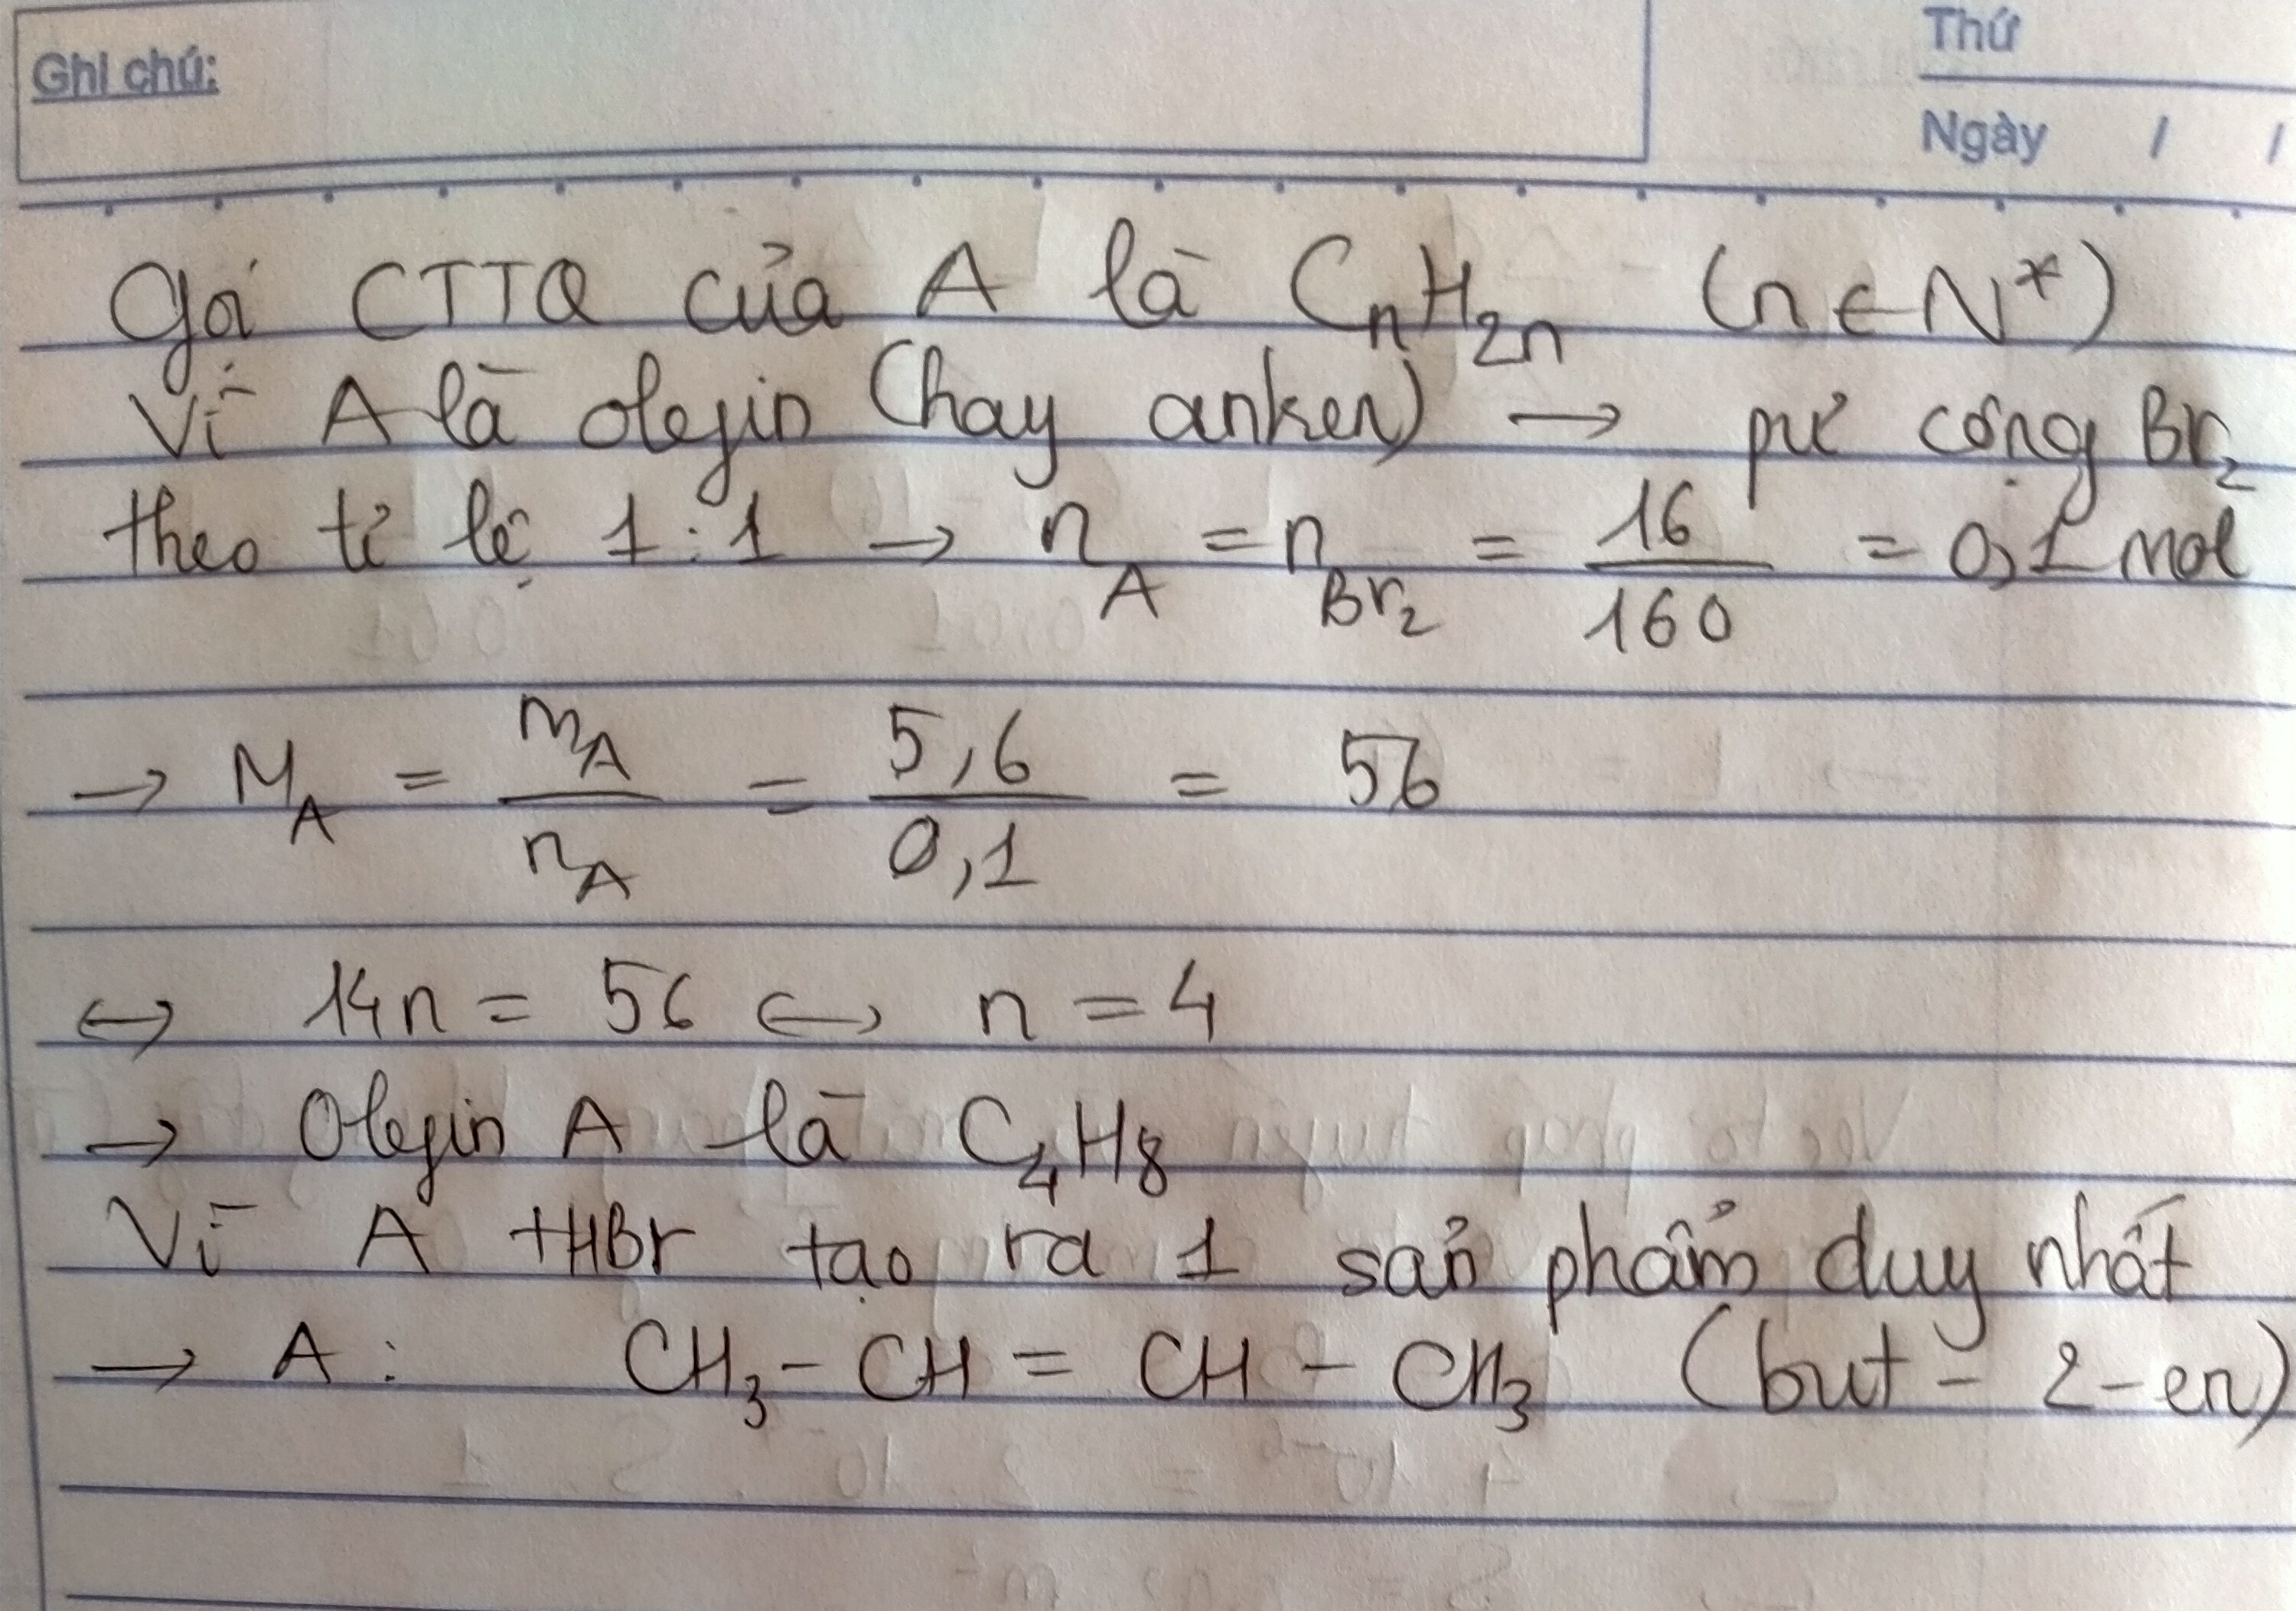 Ghi chú:
Thứ
Ngày / /
Gọi CTTQ của A là CnH2n (n ∈ N*)
Vì A là olefin (hay anken) → pứ cộng Br2
theo tỉ lệ 1 : 1 → nA = nBr2 = 16/160 = 0,1 mol
→ MA = mA/nA = 5,6/0,1 = 56
↔ 14n = 56 ↔ n = 4
→ Olefin A là C4H8
Vì A + HBr tạo ra 1 sản phẩm duy nhất
→ A : CH3 - CH = CH - CH3 (but - 2 - en)